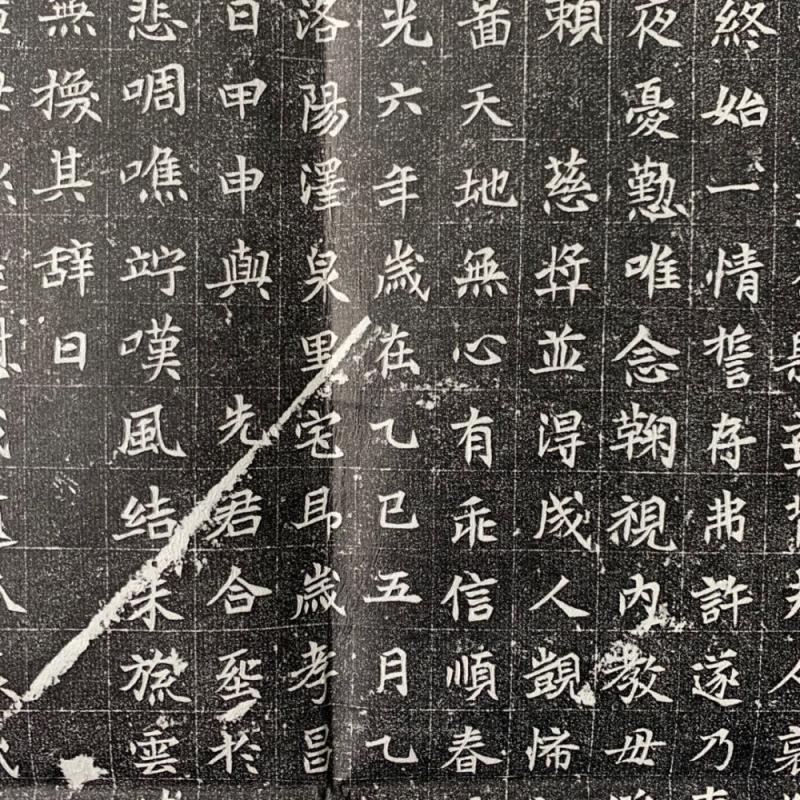 終始一情誓存弗許遂乃
夜憂懃唯念鞠視內教毋
賴 慈弉並淂成人覬悕
啚天地無心有乖信順春
光六年歲在乙巳五月乙
洛陽澤泉里宅歲孝昌
日甲申與 先君合塟於
悲啁噍竚嘆風結旐雲
無其辞曰